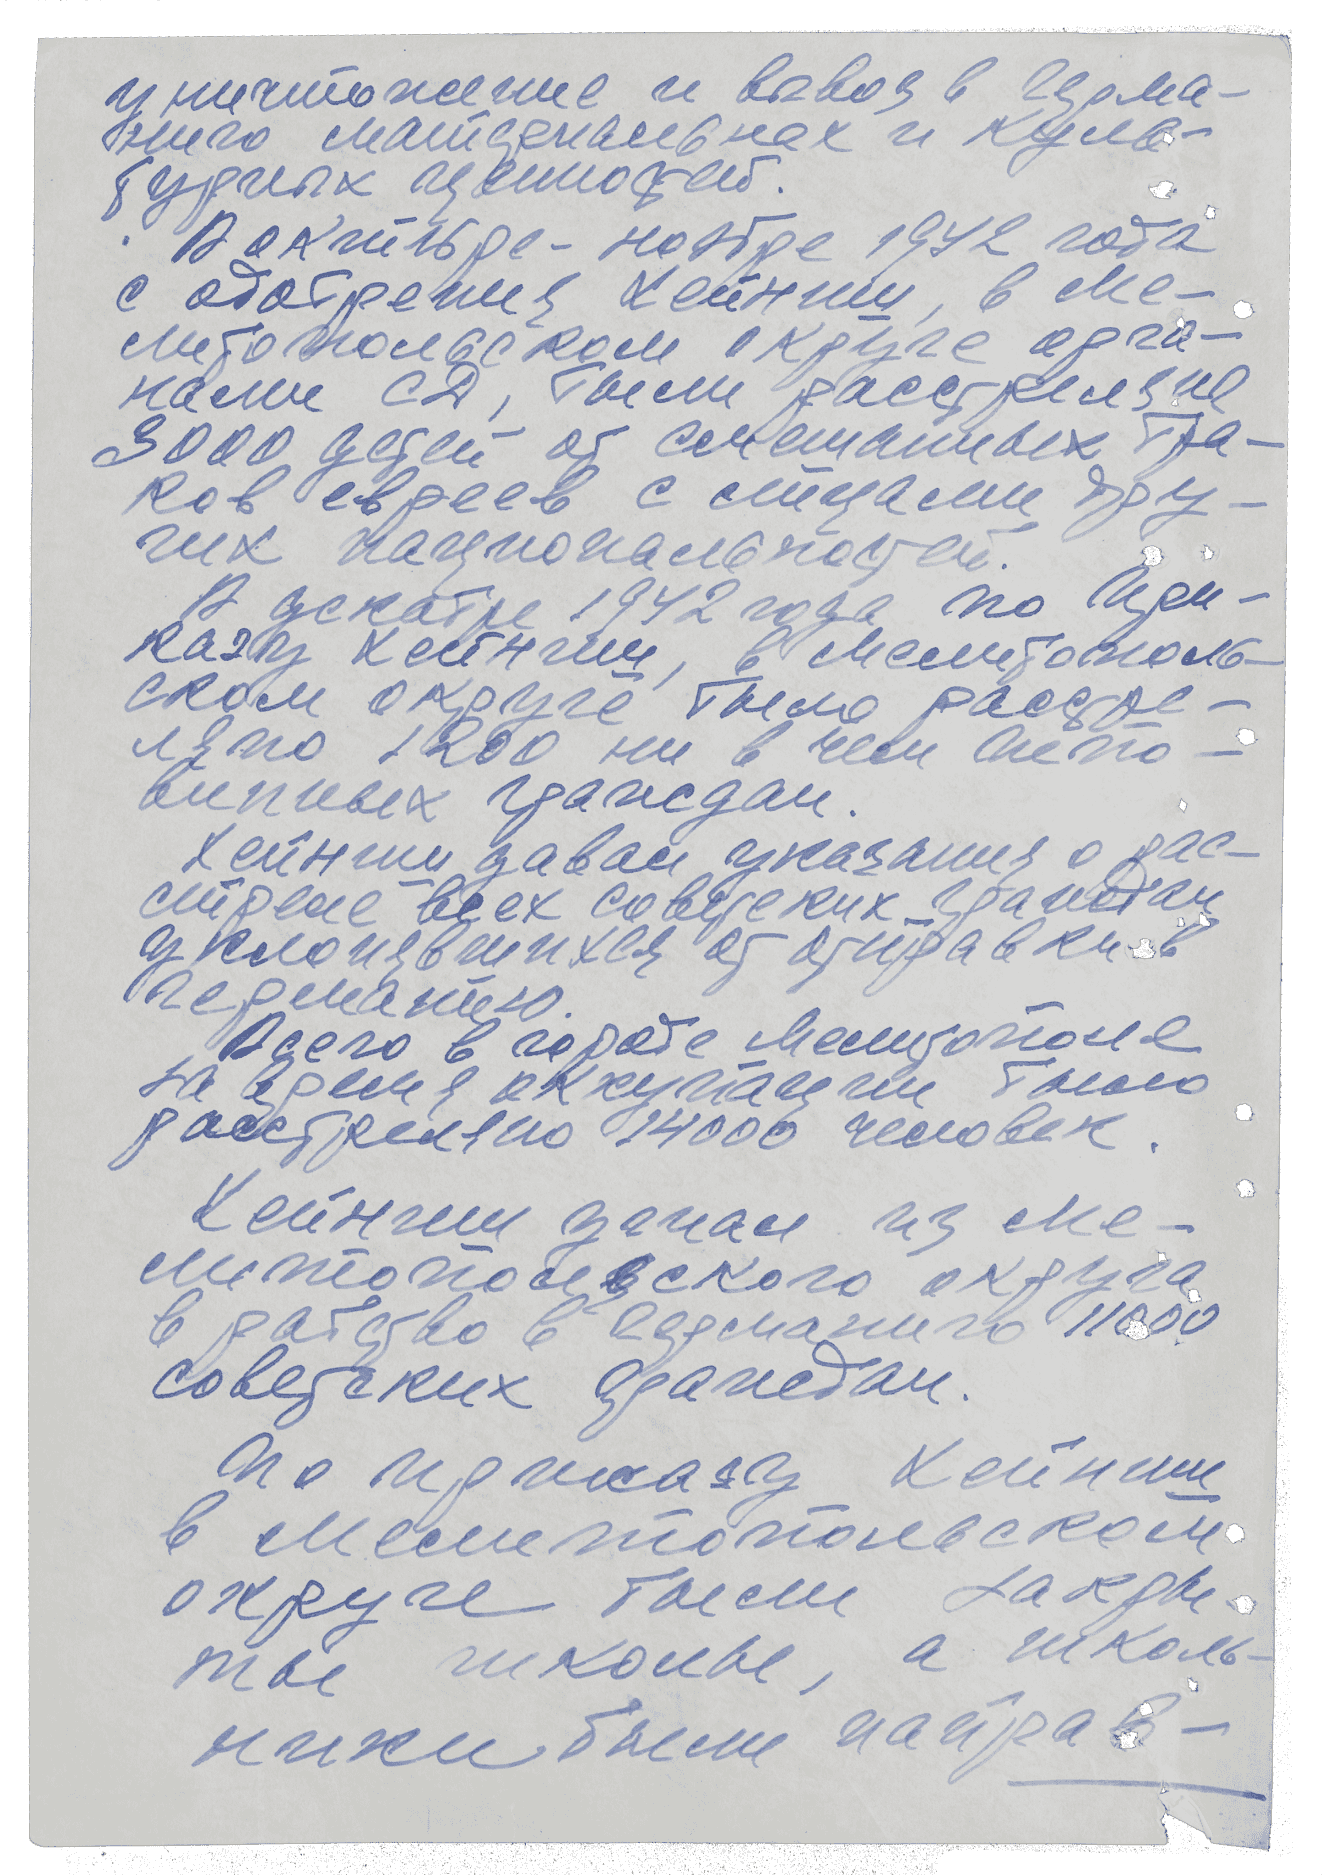 уничтожение и вывоз в Герма-
нию материальных и куль-
турных ценностей.
В октябре-ноябре 1942 года
с одобрения Хейниш, в Ме-
литопольском округе орга-
нами СД, были расстреляна
3000 детей от смешанных бра-
ков евреев с лицами дру-
гих национальностей.
В декабре 1942 года по при-
казу Хейниш, в Мелитополь-
ском округе было расстре-
ляно 1200 ни в чем непо-
винных граждан.
Хейниш давал указания о рас-
стреле всех советских граждан
уклонявшихся от отправки в
Германию.
Всего в городе Мелитополе
за время оккупации было
расстреляно 14000 человек.
Хейниш угнал из Ме-
литопольского округа
в рабство в Германию 11000
советских граждан.
По приказу Хейниш
в Мелитопольском
округе были закры-
ты школы, а школь-
ники были направ-